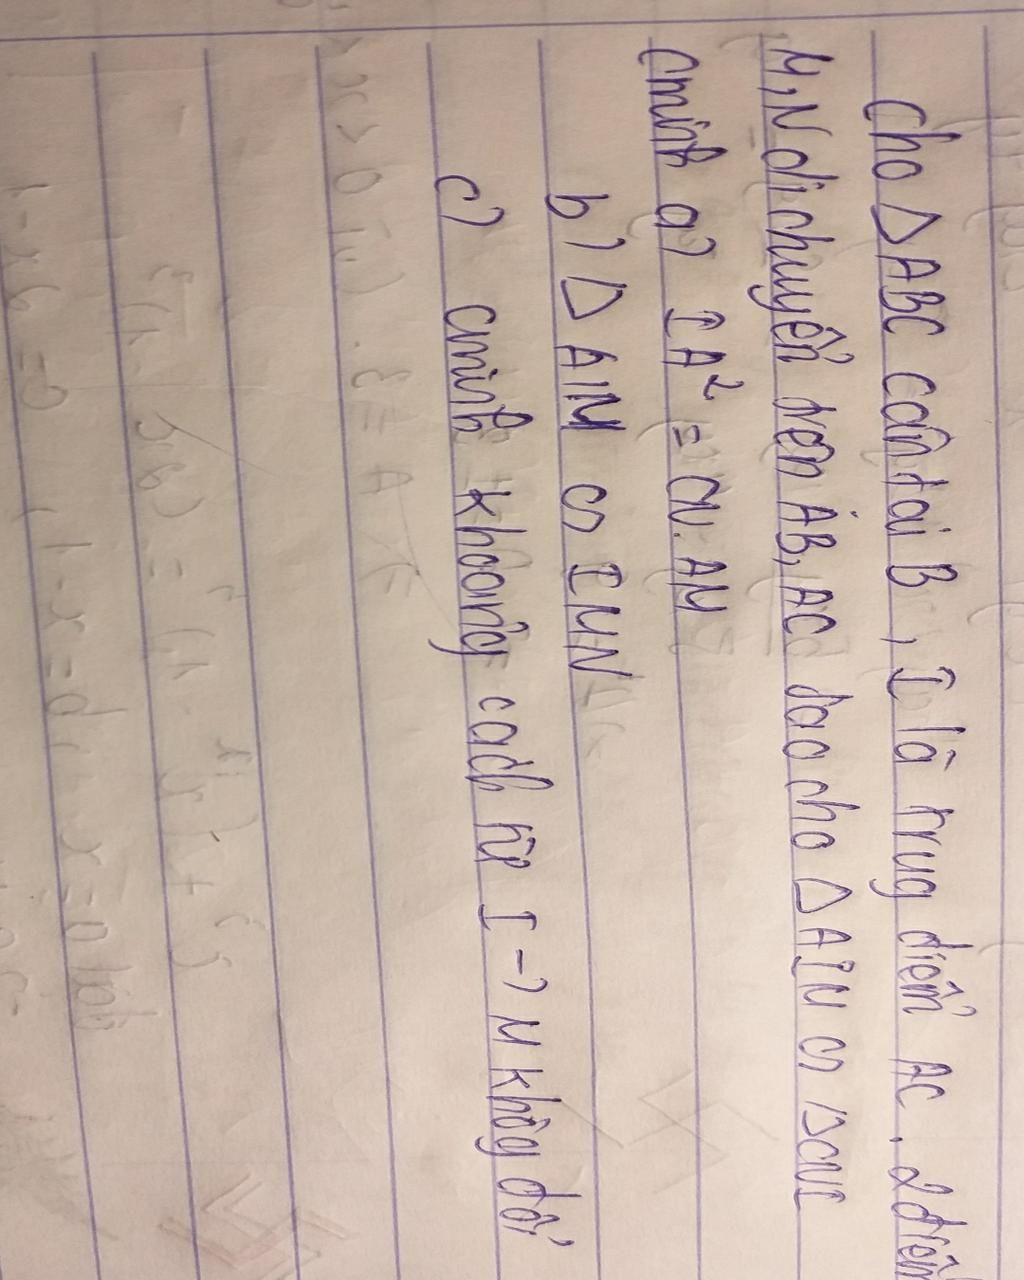 Cho △ABC cân tại B, I là trug điểm AC. 2 điểm
M, N di chuyển trên AB, AC sao cho △AIM ∽ △CNI
Cminh a) IA² = CN. AM
b) △ AIM ∽ IMN
c) cminh khoảng cách từ I → M không đổi